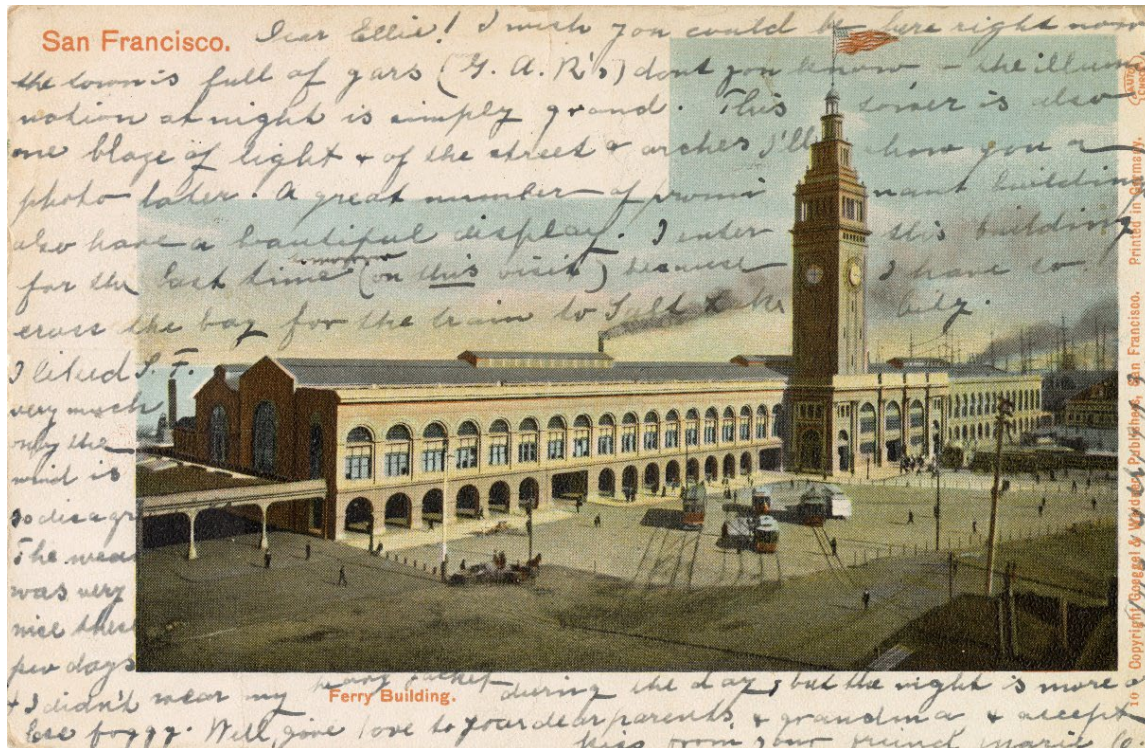 San Francisco. Dear Ellie! I wish you could be here right now
the town is full of gars (G. A. R's) dont you know - the illumi
nation at night is simply grand. This tower is also
one blaze of light & of the street & arches I'll show you a
photo later. A great number of promi nant building
also have a beautiful display. I enter this building
tomorrow
for the last time (on this visit) because I have to
cross the bay for the train to Salt Lake City.
I liked S. F.
very much
only the
wind is
so disagr
The wea
was very
nice these
few days
& I didn't wear my heavy jacket during the day, but the night is more o
Ferry Building.
less foggy. Well, give love to your dear parents, & grandma & accept
kiss from your friend Marie
10 Copyright Goeggel & Weidner Publishers, San Francisco. Printed in Germany.